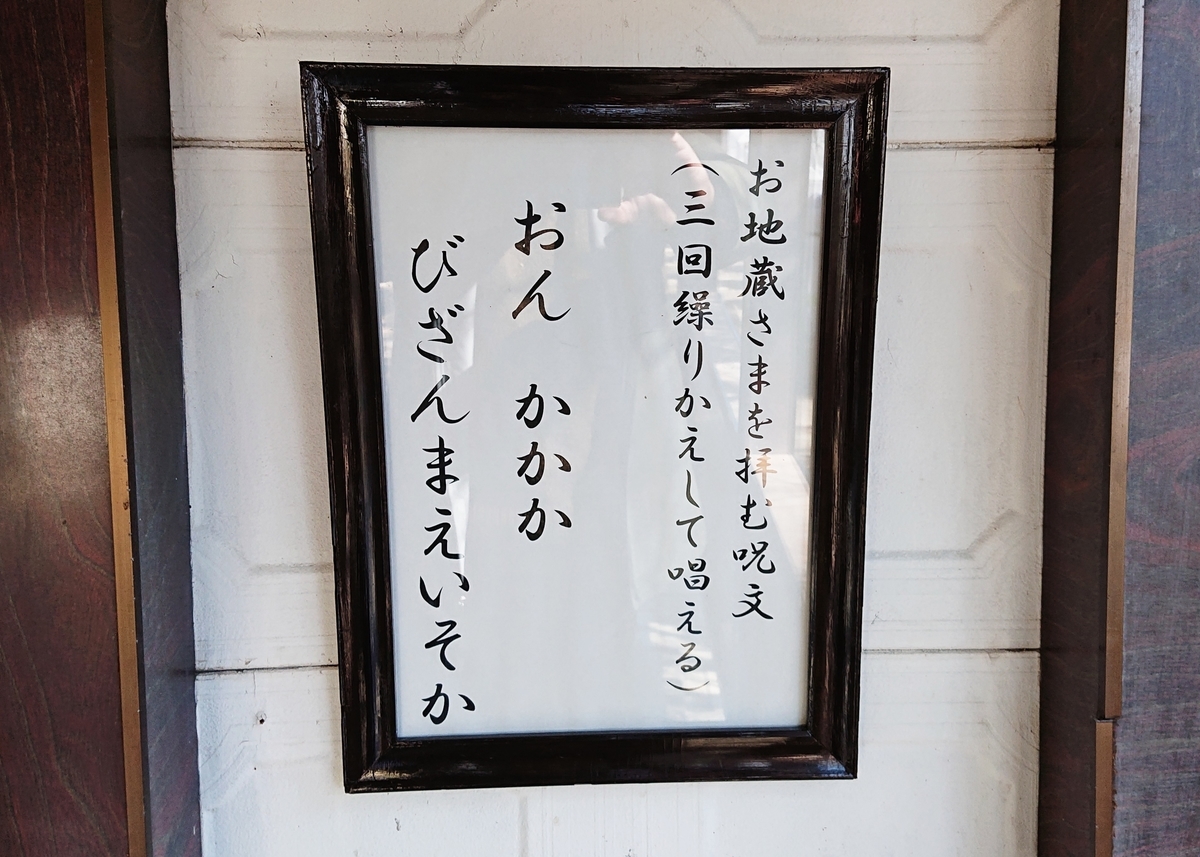 お地蔵さまを拝む呪文
（三回繰りかえして唱える）
おん　かかか
びざんまえいそか